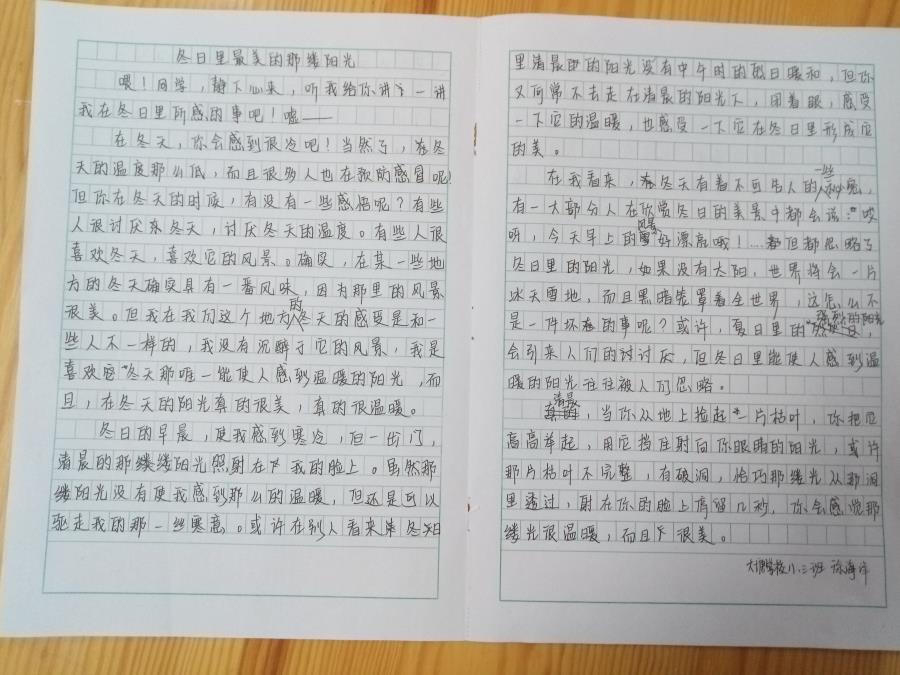 冬日里最美的那缕阳光
喂！同学，静下心来，听我给你讲讲一讲
我在冬日里所感的事吧！嘘——
在冬天，你会感到很冷吧！当然了，在冬
天的温度那么低，而且很多人也在预防感冒呢！
但你在冬天的时候，有没有一些感悟呢？有些
人很讨厌冬天，讨厌冬天的温度。有些人很
喜欢冬天，喜欢它的风景。确实，在某一些地
方的冬天确实具有一番风味，因为那里的风景
很美。但我在我们这个地方的冬天的感受是和一
些人不一样的，我没有沉醉于它的风景，我是
喜欢冬天那唯一能使人感到温暖的阳光，而
且，在冬天的阳光真的很美，真的很温暖。
冬日的早晨，使我感到寒冷，但一出门，
清晨的那缕缕阳光照射在我的脸上。虽然那
缕阳光没有使我感到那么的温暖，但还是可以
驱走我的那一丝寒意。或许在别人看来冬日
里清晨的阳光没有中午时的烈日暖和，但你
又何常不去走在清晨的阳光下，闭着眼，感受
一下它的温暖，也感受一下它在冬日里形成它
的美。
在我看来，冬天有着不可告人的一些秘密，
有一大部分人在欣赏冬日的美景中都会说："哎
呀，今天早上的风景好漂亮哦！…但都忽略了
冬日里的阳光，如果没有太阳，世界将会一片
冰天雪地，而且黑暗笼罩着全世界，这怎么不
是一件坏的事呢？或许，夏日里的强烈的阳光
会引来人们的讨讨厌，但冬日里能使人感到温
暖的阳光往往被人们忽略。
清晨，当你从地上捡起一片枯叶，你把它
高高举起，用它挡住射向你眼睛的阳光，或许
那片枯叶不完整，有破洞，恰巧那缕光从那洞
里透过，射在你的脸上停留几秒，你会感觉那
缕光很温暖，而且很美。